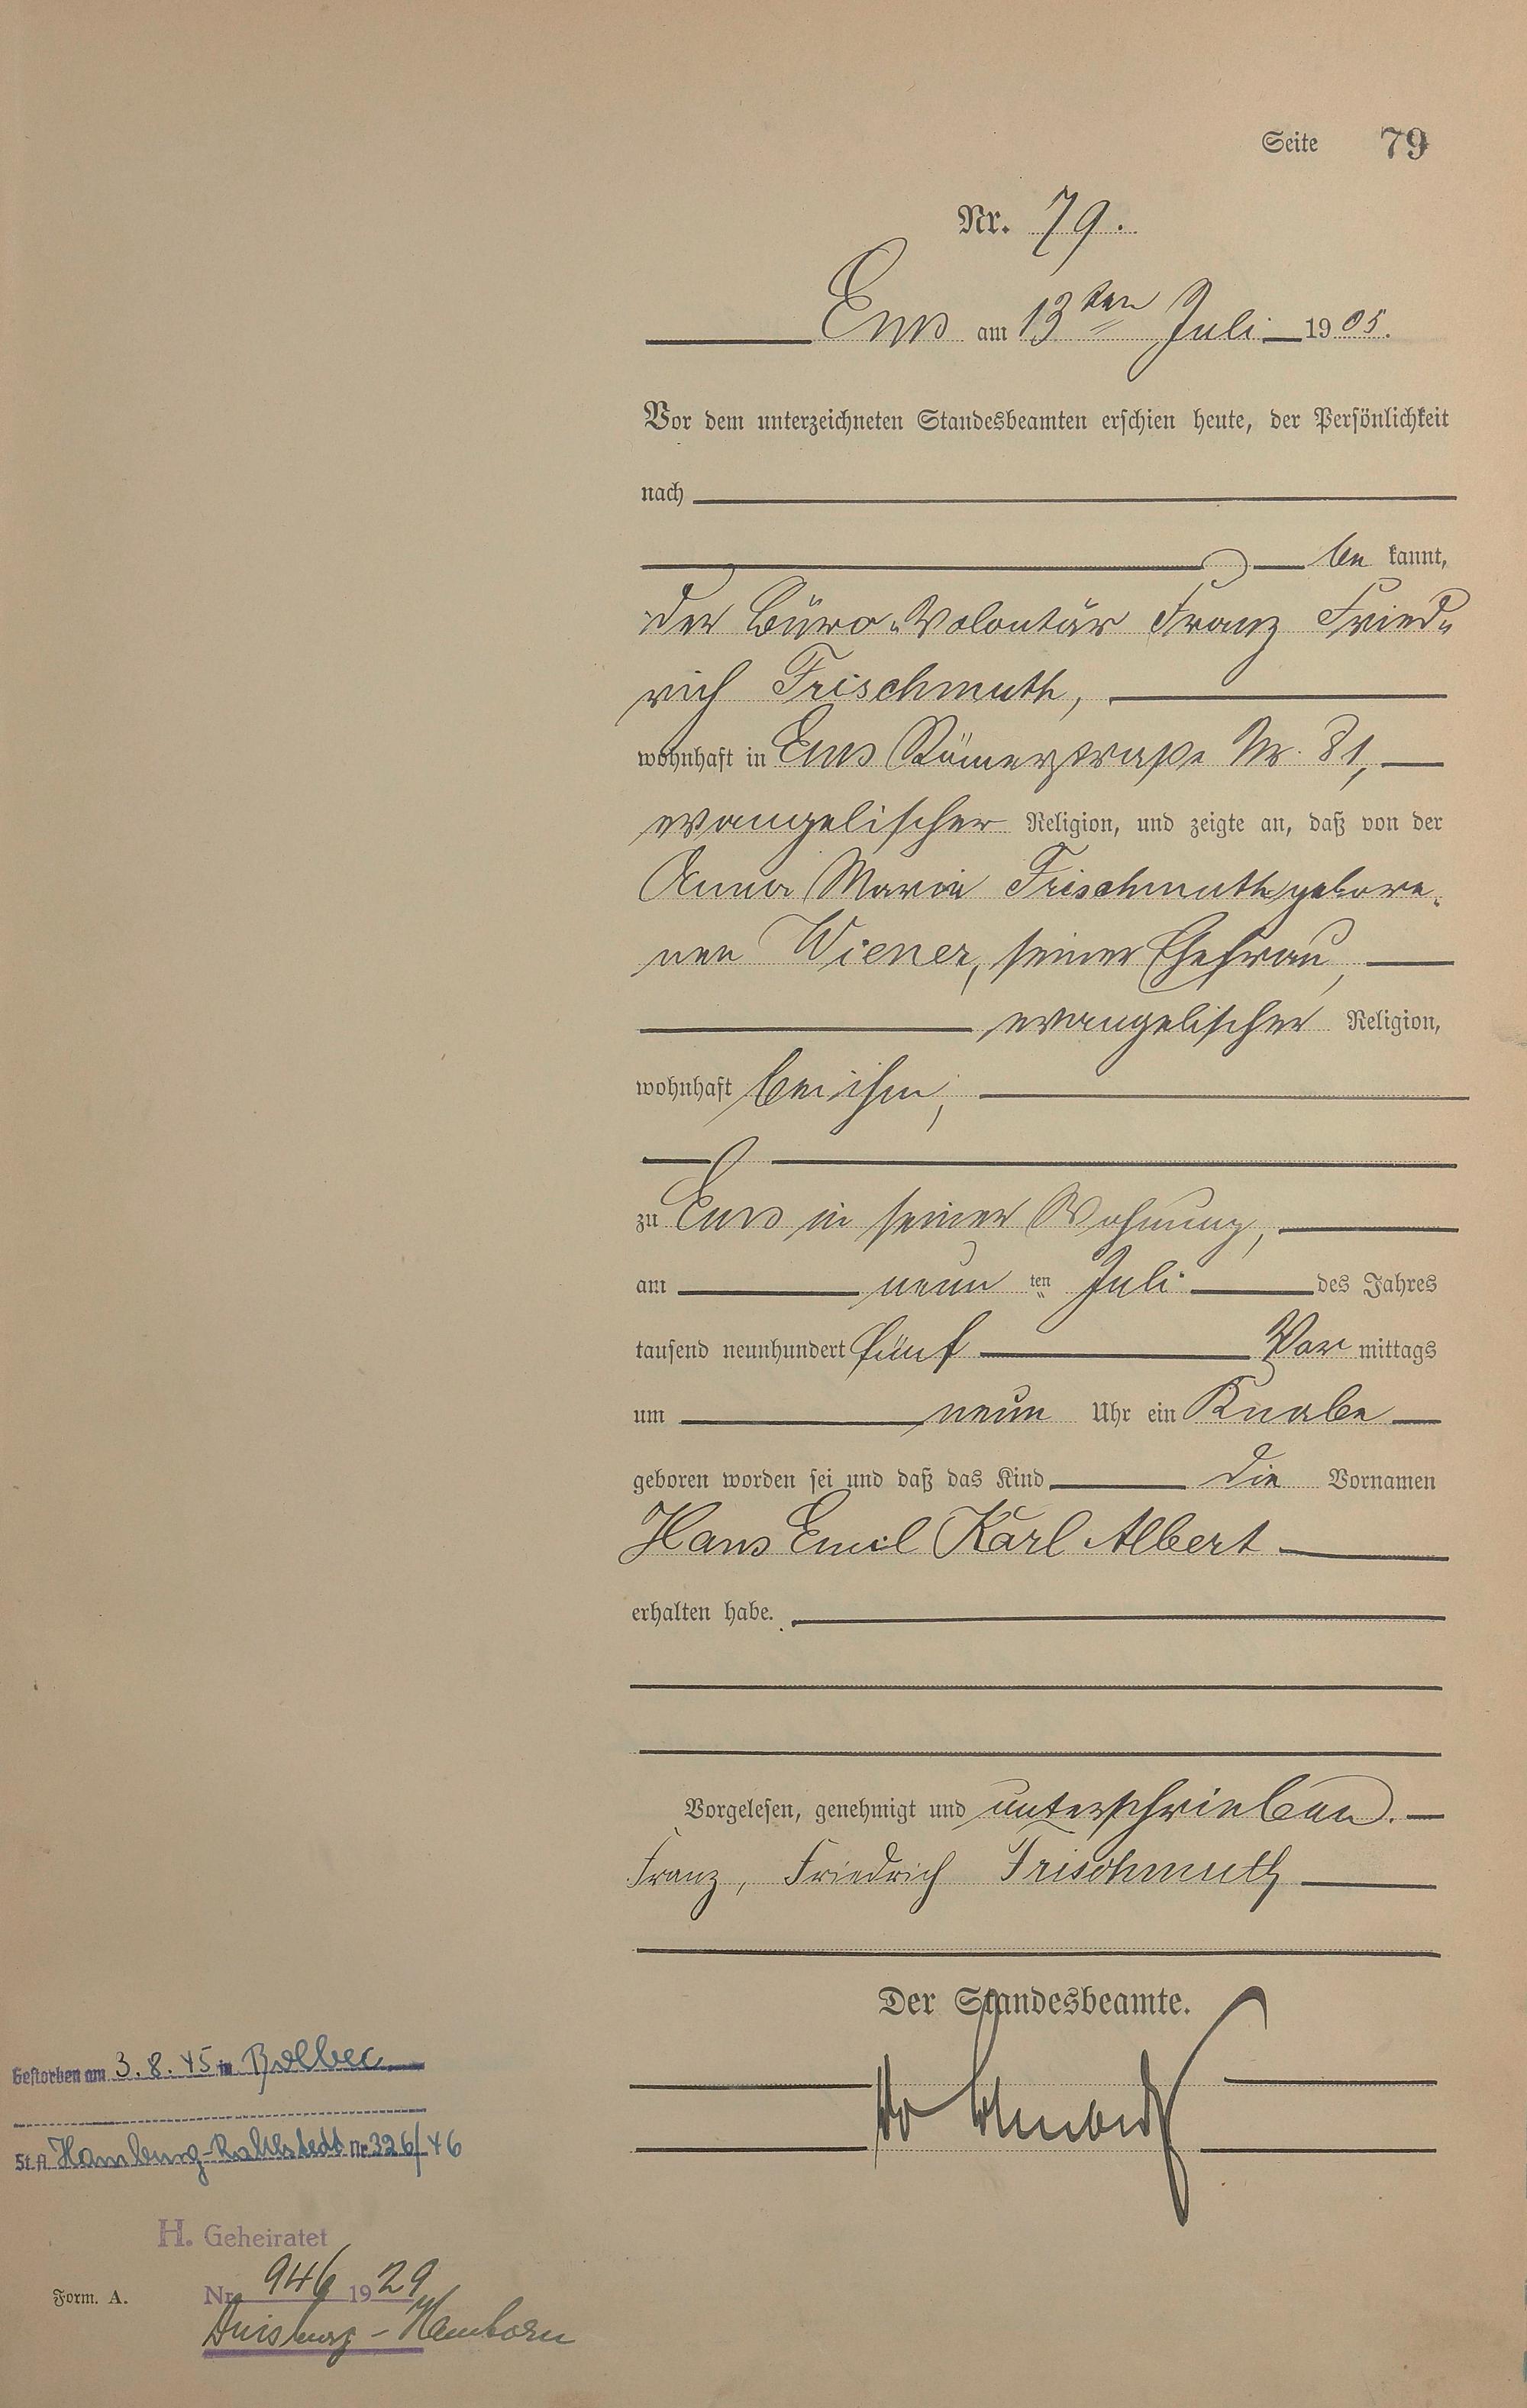 Seite 79
Nr. 79.
Ems am 13ten Juli 1905.
Vor dem unterzeichneten Standesbeamten erschien heute, der Persönlichkeit
nach
be kannt,
der Büro-Volontär Franz Fried-
rich Frischmuth,
wohnhaft in Ems Römerstraße Nr. 81,
evangelischer Religion, und zeigte an, daß von der
Anna Maria Frischmuth gebore-
nen Wiener, seiner Ehefrau,
evangelischer Religion,
wohnhaft bei ihm,
zu Ems in seiner Wohnung,
am neun ten Juli des Jahres
tausend neunhundert fünf Vor mittags
um neun Uhr ein Knabe
geboren worden sei und daß das Kind die Vornamen
Hans Emil Karl Albert
erhalten habe.
Vorgelesen, genehmigt und unterschrieben.
Franz, Friedrich Frischmuth
Der Standesbeamte.
Gestorben am 3.8.45 in Bolbec
St.A. Hamburg-Rahlstedt Nr. 326/46
H. Geheiratet
Nr. 946 1929
Duisburg-Hamborn
Form. A.